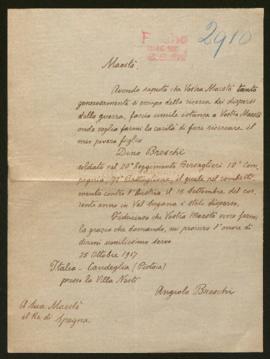 2910
Maestà
Avendo saputo che Vostra Maestà tanto
generosamente si occupa della ricerca dei dispersi
della guerra, faccio umile istanza a Vostra Maestà
onde voglia farmi la carità di fare ricercare il
mio povero figlio
Dino Breschi
soldato nel 20° Reggimento Bersaglieri 10ª Com
pagnia, 71° Battaglione, il quale nel combatti
mento contro l'Austria il 18 Settembre del cor
rente anno in Val Sugana è stato disperso.
Fiducioso che Vostra Maestà vorrà farmi
la grazia che domando, mi procuro l'onore di
dirmi umilissimo servo
25 Ottobre 1917
Italia - Candeglia (Pistoia)
presso la Villa
Angiolo Breschi
A Sua Maestà
il Re di Spagna